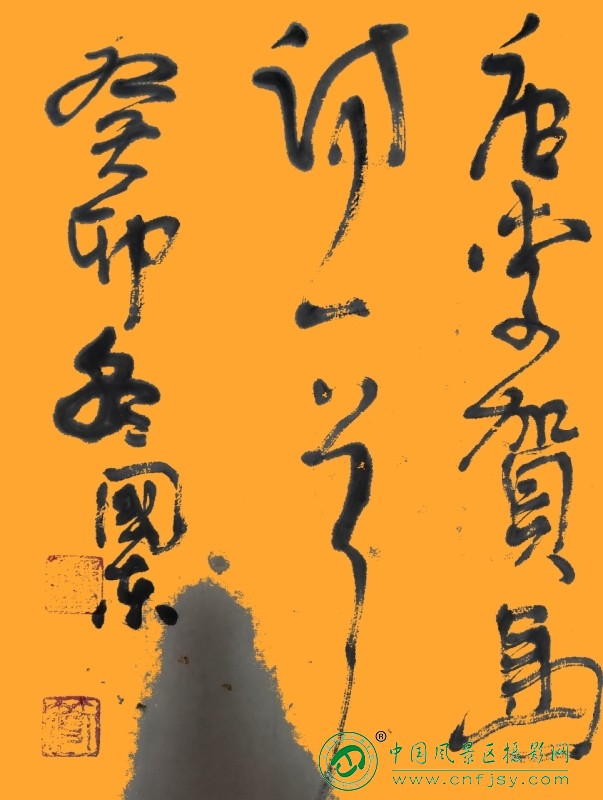 唐李贺马
诗一首
癸卯冬国东
中国风景区摄影网
www.cnfjsy.com